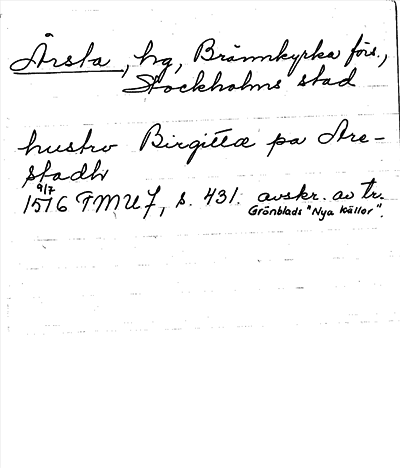 Årsta, hg, Brännkyrka förs.,
Stockholms stad
hustro Birgitta pa Are-
stadh
9/7
1516 FMU 7, s. 431. avskr. av tr.
Grönblads "Nya källor".